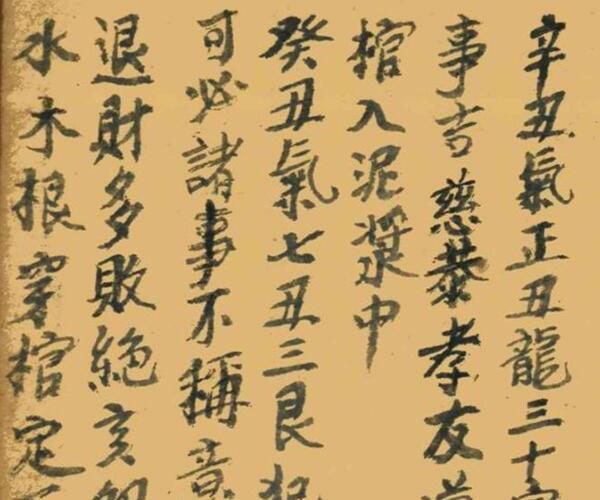 辛丑氣正丑龍三十
事吉慈恭孝友
棺入泥漿中
癸丑氣七丑三艮
可必諸事不稱意
退財多敗絕亥卯
水木根穿棺定